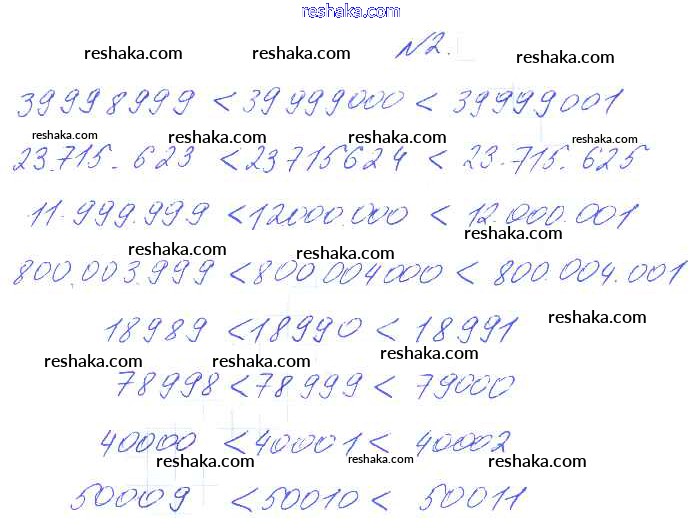 reshaka.com
№2.
reshaka.com reshaka.com reshaka.com
39998999 < 39999000 < 39999001
reshaka.com reshaka.com reshaka.com reshaka.com
23.715.623 < 23715624 < 23.715.625
11.999.999 < 12000.000 < 12.000.001
reshaka.com reshaka.com reshaka.com
800.003.999 < 800.004000 < 800.004.001
18989 < 18990 < 18991
reshaka.com
reshaka.com reshaka.com reshaka.com
78998 < 78999 < 79000
40000 < 40001 < 40002
reshaka.com reshaka.com reshaka.com
50009 < 50010 < 50011